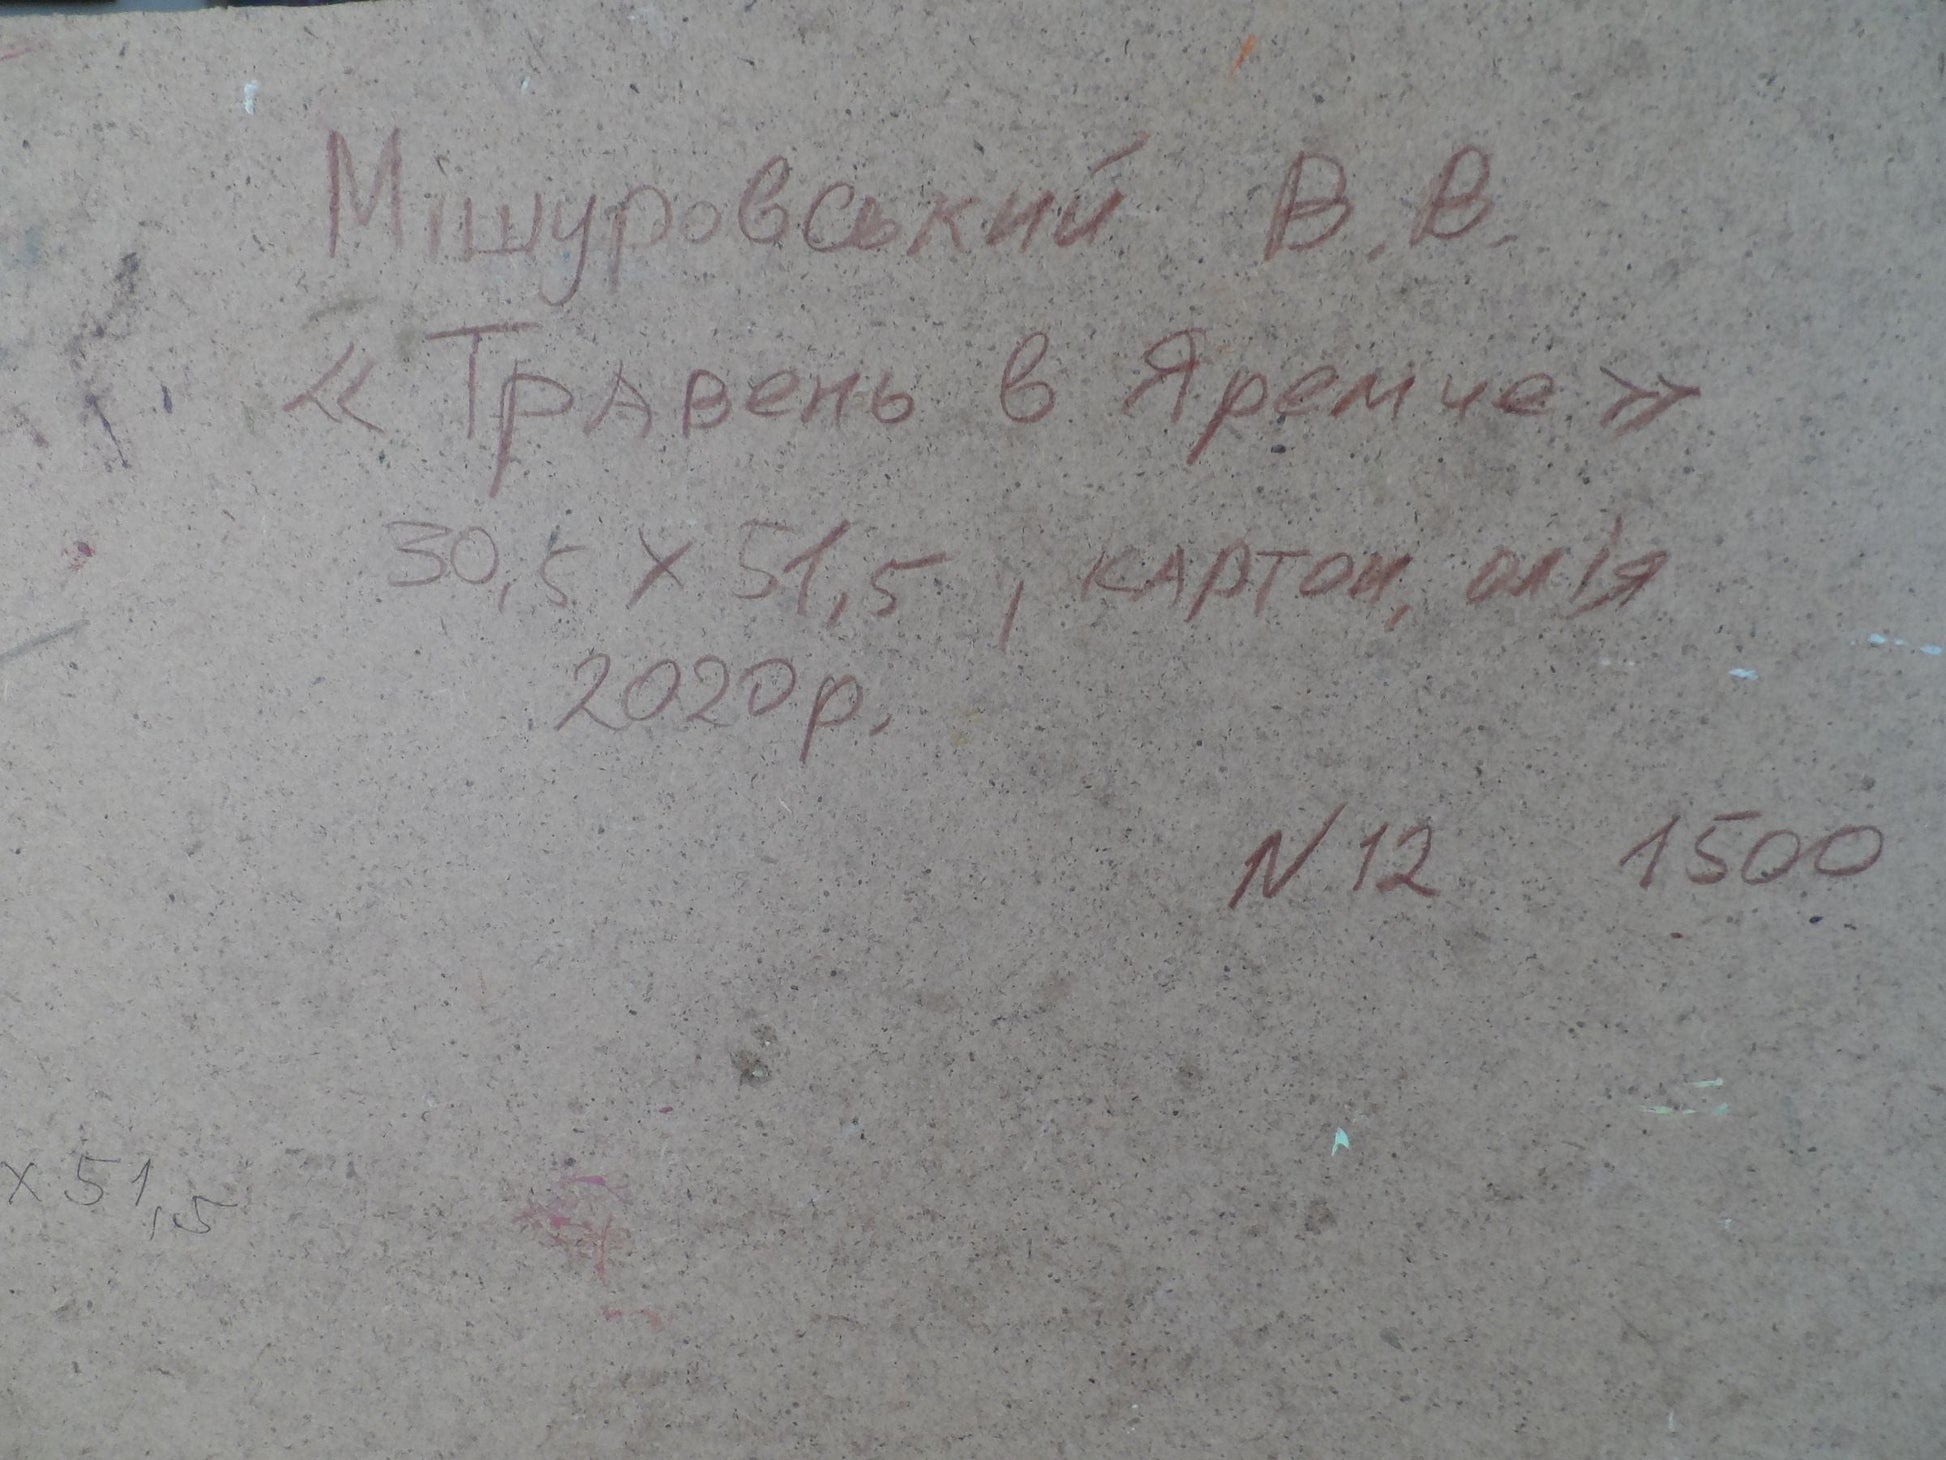 Мішуровський В.В.
«Травень в Яремче»
30,5 х 51,5, картон, олія
2020р.
N12 1500
х 51,5